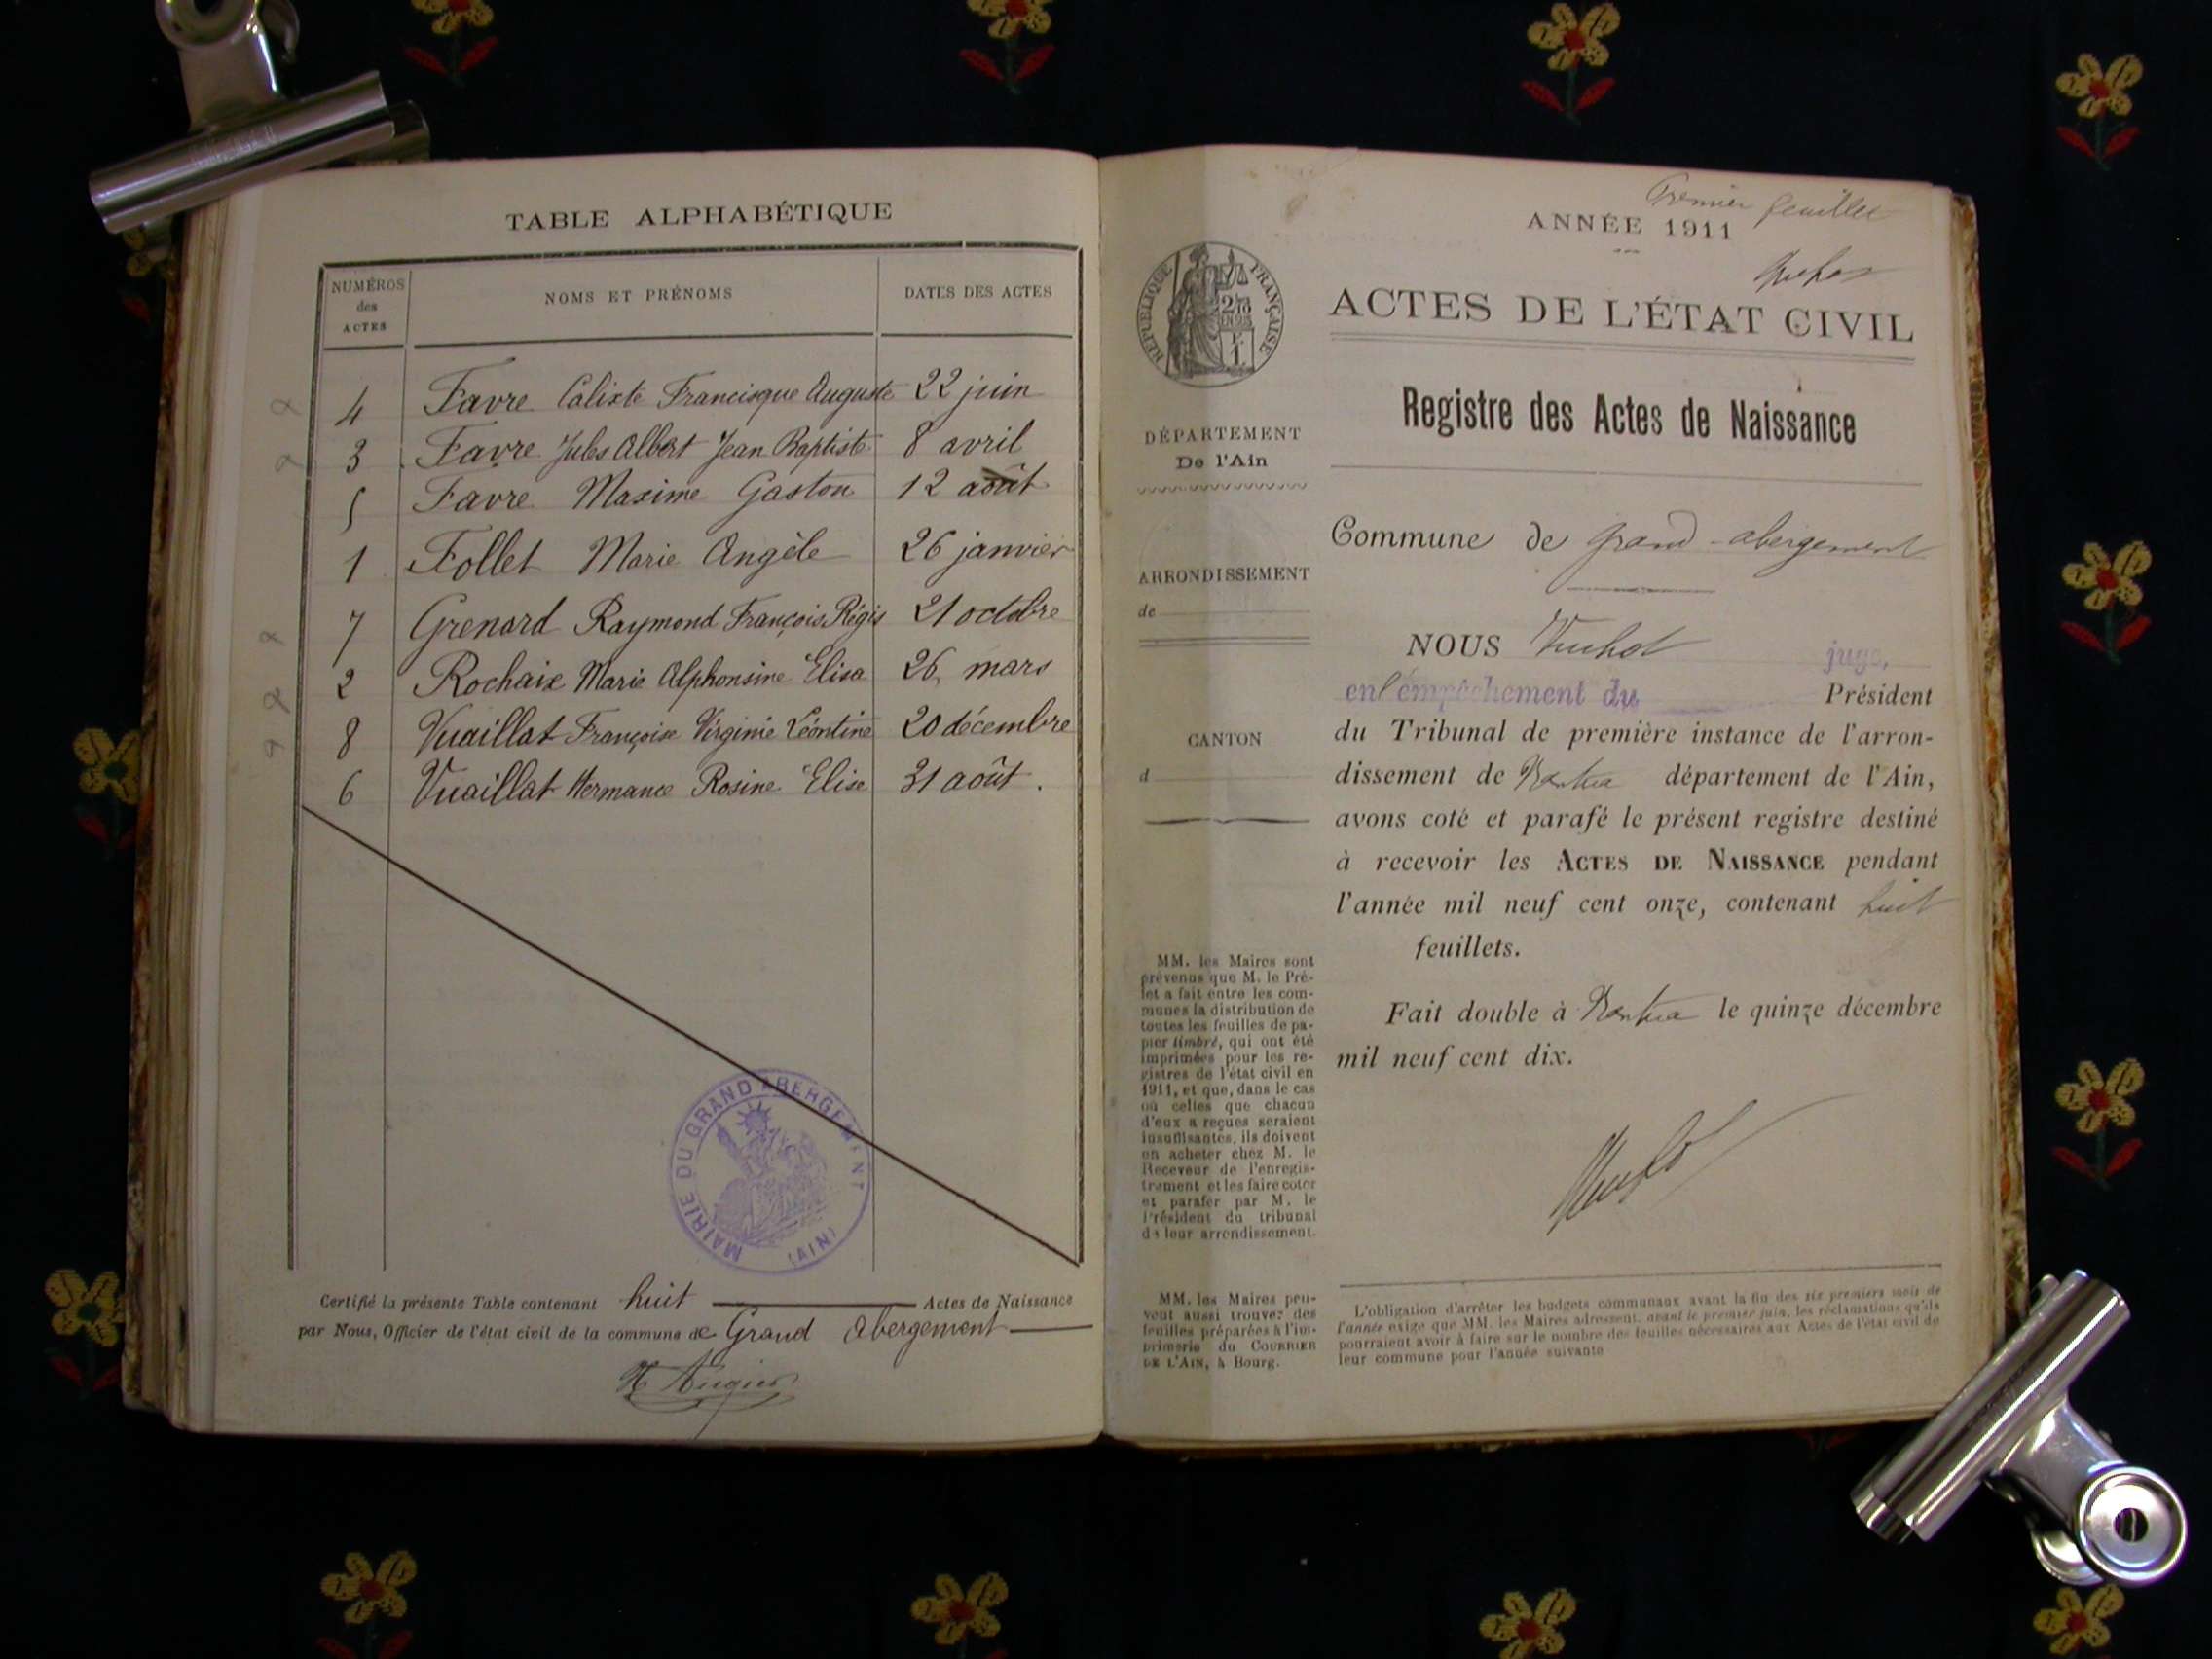 TABLE ALPHABÉTIQUE
NUMÉROS des ACTES
NOMS ET PRÉNOMS
DATES DES ACTES
4 Favre Calixte Francisque Auguste 22 juin
3 Favre Jules Albert Jean Baptiste 8 avril
5 Favre Maxime Gaston 12 août
1 Follet Marie Angèle 26 janvier
7 Grenard Raymond François Régis 21 octobre
2 Rochaix Marie Alphonsine Elisa 26 mars
8 Vuaillat Françoise Virginie Léontine 20 décembre
6 Vuaillat Hermance Rosine Elise 31 août.
MAIRIE DU GRAND ABERGEMENT
(AIN)
Certifié la présente Table contenant huit Actes de Naissance
par Nous, Officier de l'état civil de la commune de Grand Abergement
Premier feuillet
ANNÉE 1911
RÉPUBLIQUE FRANÇAISE
ACTES DE L'ÉTAT CIVIL
Registre des Actes de Naissance
DÉPARTEMENT
De l'Ain
ARRONDISSEMENT
de
CANTON
d
MM. les Maires sont
prévenus que M. le Pré-
fet a fait entre les com-
munes la distribution de
toutes les feuilles de pa-
pier timbré, qui ont été
imprimées pour les re-
gistres de l'état civil en
1911, et que, dans le cas
où celles que chacun
d'eux a reçues seraient
insuffisantes, ils doivent
en acheter chez M. le
Receveur de l'enregis-
trement et les faire coter
et parafer par M. le
Président du tribunal
de leur arrondissement.
MM. les Maires peu-
vent aussi trouver des
feuilles préparées à l'im-
primerie du COURRIER
DE L'AIN, à Bourg.
Commune de Grand-abergement
NOUS juge,
en l'empêchement du Président
du Tribunal de première instance de l'arron-
dissement de Nantua département de l'Ain,
avons coté et parafé le présent registre destiné
à recevoir les ACTES DE NAISSANCE pendant
l'année mil neuf cent onze, contenant huit
feuillets.
Fait double à Nantua le quinze décembre
mil neuf cent dix.
L'obligation d'arrêter les budgets communaux avant la fin des six premiers mois de
l'année exige que MM. les Maires adressent, avant le premier juin, les réclamations qu'ils
pourraient avoir à faire sur le nombre des feuilles nécessaires aux Actes de l'état civil de
leur commune pour l'année suivante